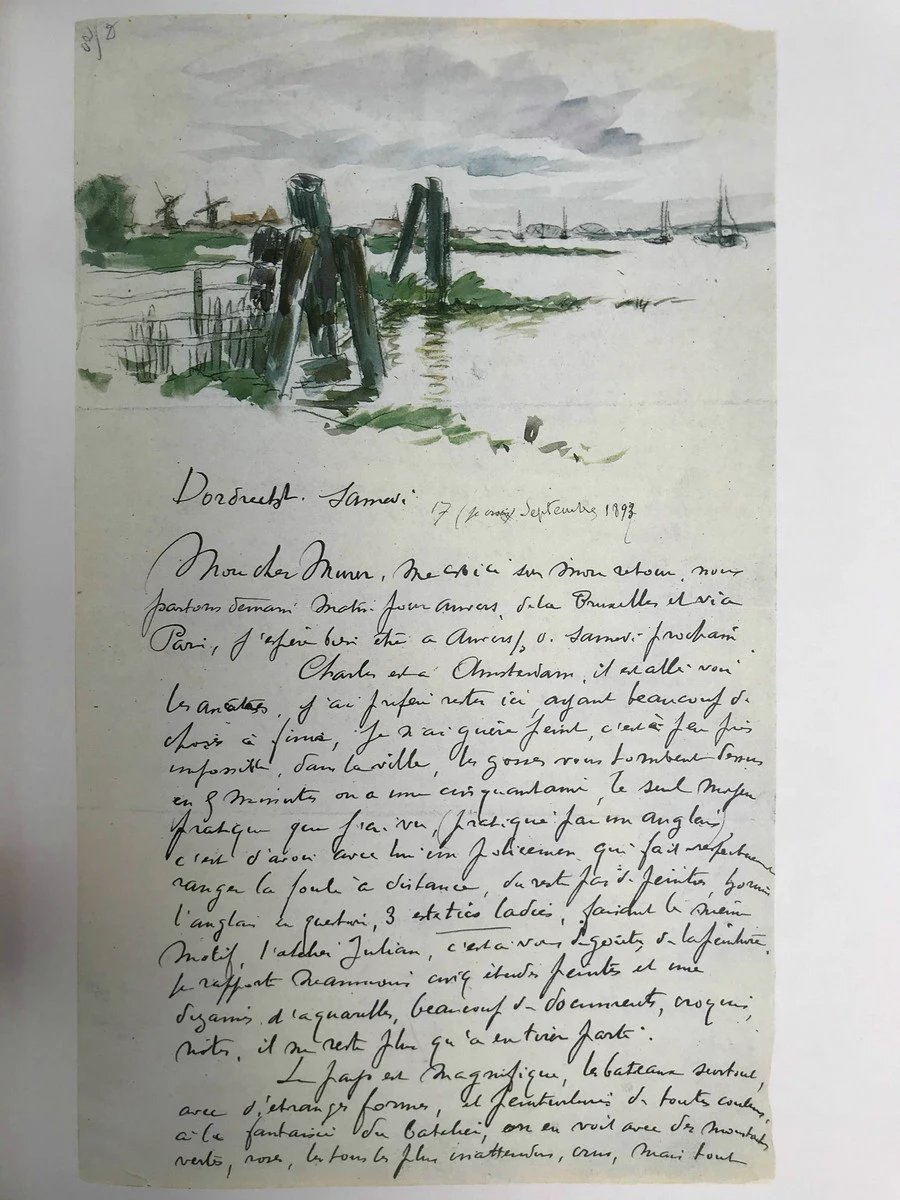 Dordrecht. Samedi
17 Septembre 1893
Mon cher Murer, me voici sur mon retour, nous
partons demain matin pour Anvers, de là Bruxelles et via
Paris, j'espère bien être à Auvers s/o. samedi prochain
Charles est à Amsterdam, il est allé voir
les j'ai préféré rester ici ayant beaucoup de
choses à finir, je n'ai guère peint, c'est à peu près
impossible, dans la ville, les gosses vous tombent dessus
en 5 minutes on a une cinquantaine, le seul moyen
pratique que j'ai vu, (pratiqué par un anglais)
c'est d'avoir avec lui un policemen qui fait respectueusement
ranger la foule à distance, du reste pas de peintres, hormis
l'anglais en question, 3 estetics ladies, faisant le même
motif, l'atelier Julian, c'est à vous dégoûter de la peinture.
je rapporte néanmoins cinq études peintes et une
dizaine d'aquarelles, beaucoup de documents, croquis,
notes, il ne reste plus qu'à en tirer parti.
Le pays est magnifique, les bateaux surtout,
avec d'étranges formes, et peinturlurés de toutes couleurs,
à la fantaisie du batelier, on en voit avec des
verts, roses, les tons les plus inattendus, crus, mais tout